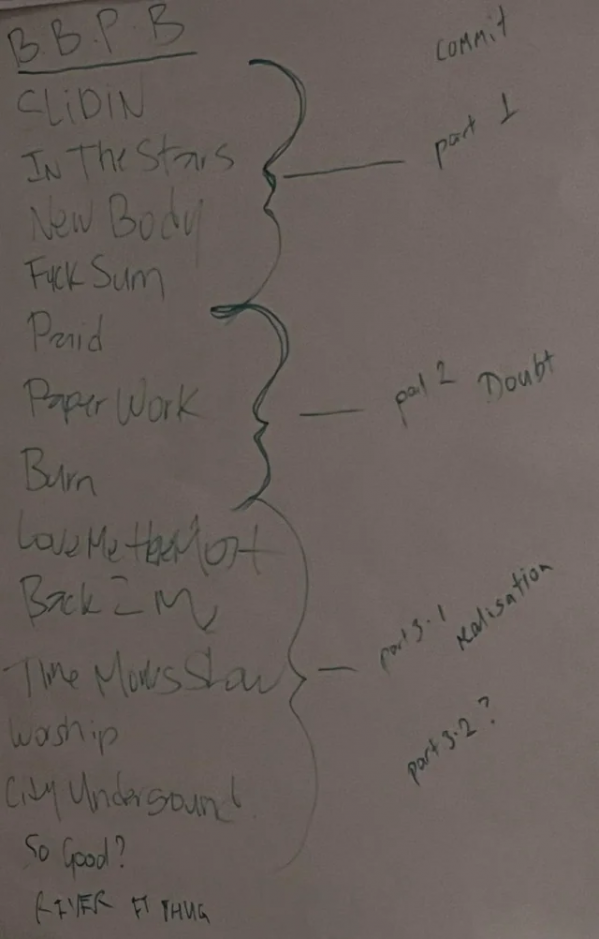 B.B.P.B
SLiDiN
IN The Stars
New Body
Fuck Sum
Paid
Paper Work
Burn
Love Me the Most
Back 2 Me
Time Moves Slow
Worship
City Undersound
So Good?
RIVER FT THUG
commit
part 1
part 2 Doubt
part 3.1 realisation
part 3.2?